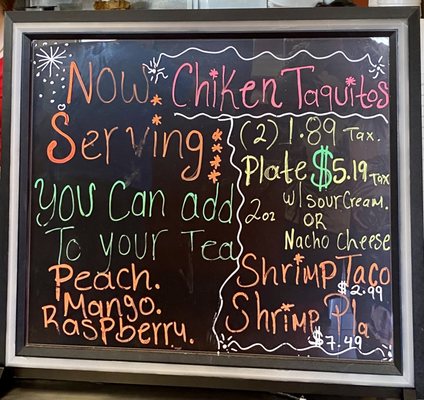 Now
Serving:
You Can add
To your Tea
Peach.
Mango.
Raspberry.
Chiken Taquitos
(2) 1.89 Tax.
Plate $5.19 Tax
2oz w/ Sour Cream.
OR
Nacho Cheese
Shrimp Taco
$2.99
Shrimp Pla
$7.49